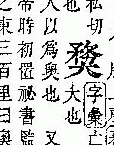 私切
字彙亡
也大也又
人以為奧也
帝時初置祕書監
之東三百里曰